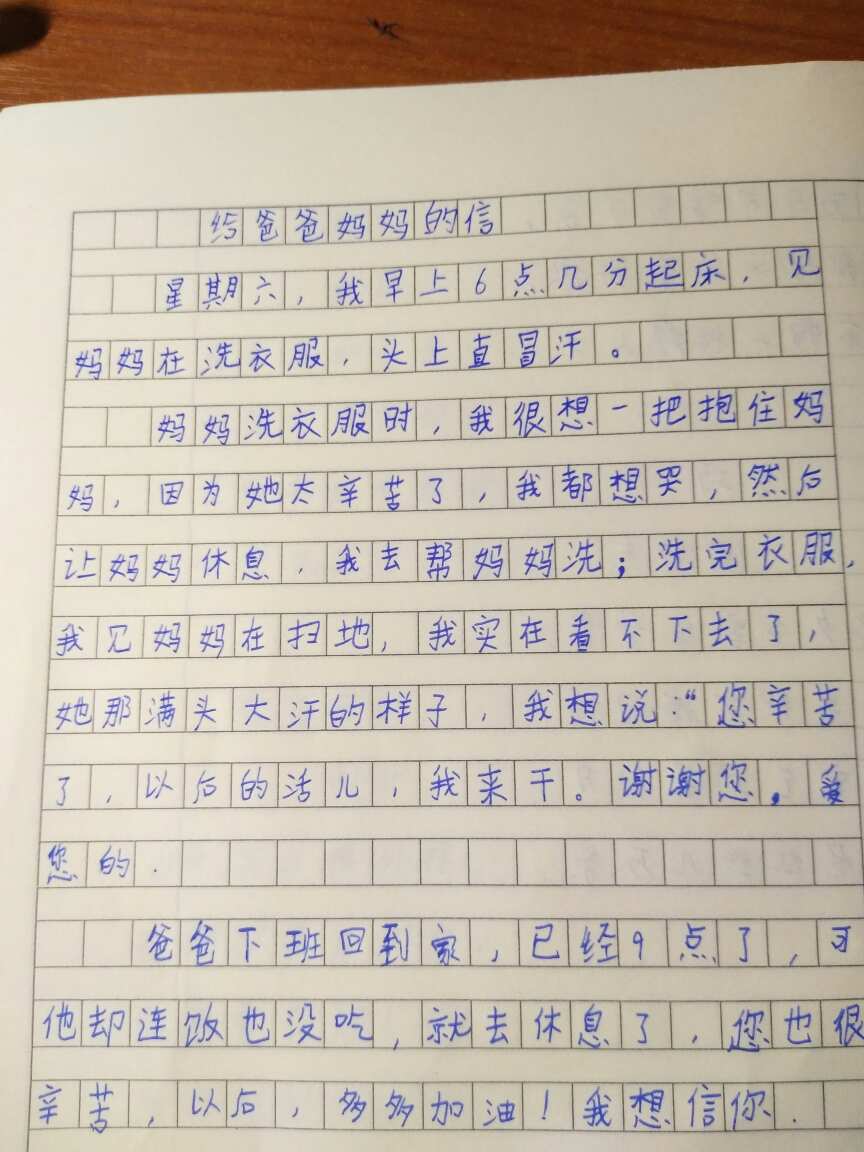 给爸爸妈妈的信
星期六，我早上6点几分起床，见
妈妈在洗衣服，头上直冒汗。
妈妈洗衣服时，我很想一把抱住妈
妈，因为她太辛苦了，我都想哭，然后
让妈妈休息，我去帮妈妈洗；洗完衣服，
我见妈妈在扫地，我实在看不下去了，
她那满头大汗的样子，我想说：“您辛苦
了，以后的活儿，我来干。谢谢您，爱
您的.
爸爸下班回到家，已经9点了，可
他却连饭也没吃，就去休息了，您也很
辛苦，以后，多多加油！我想信你.